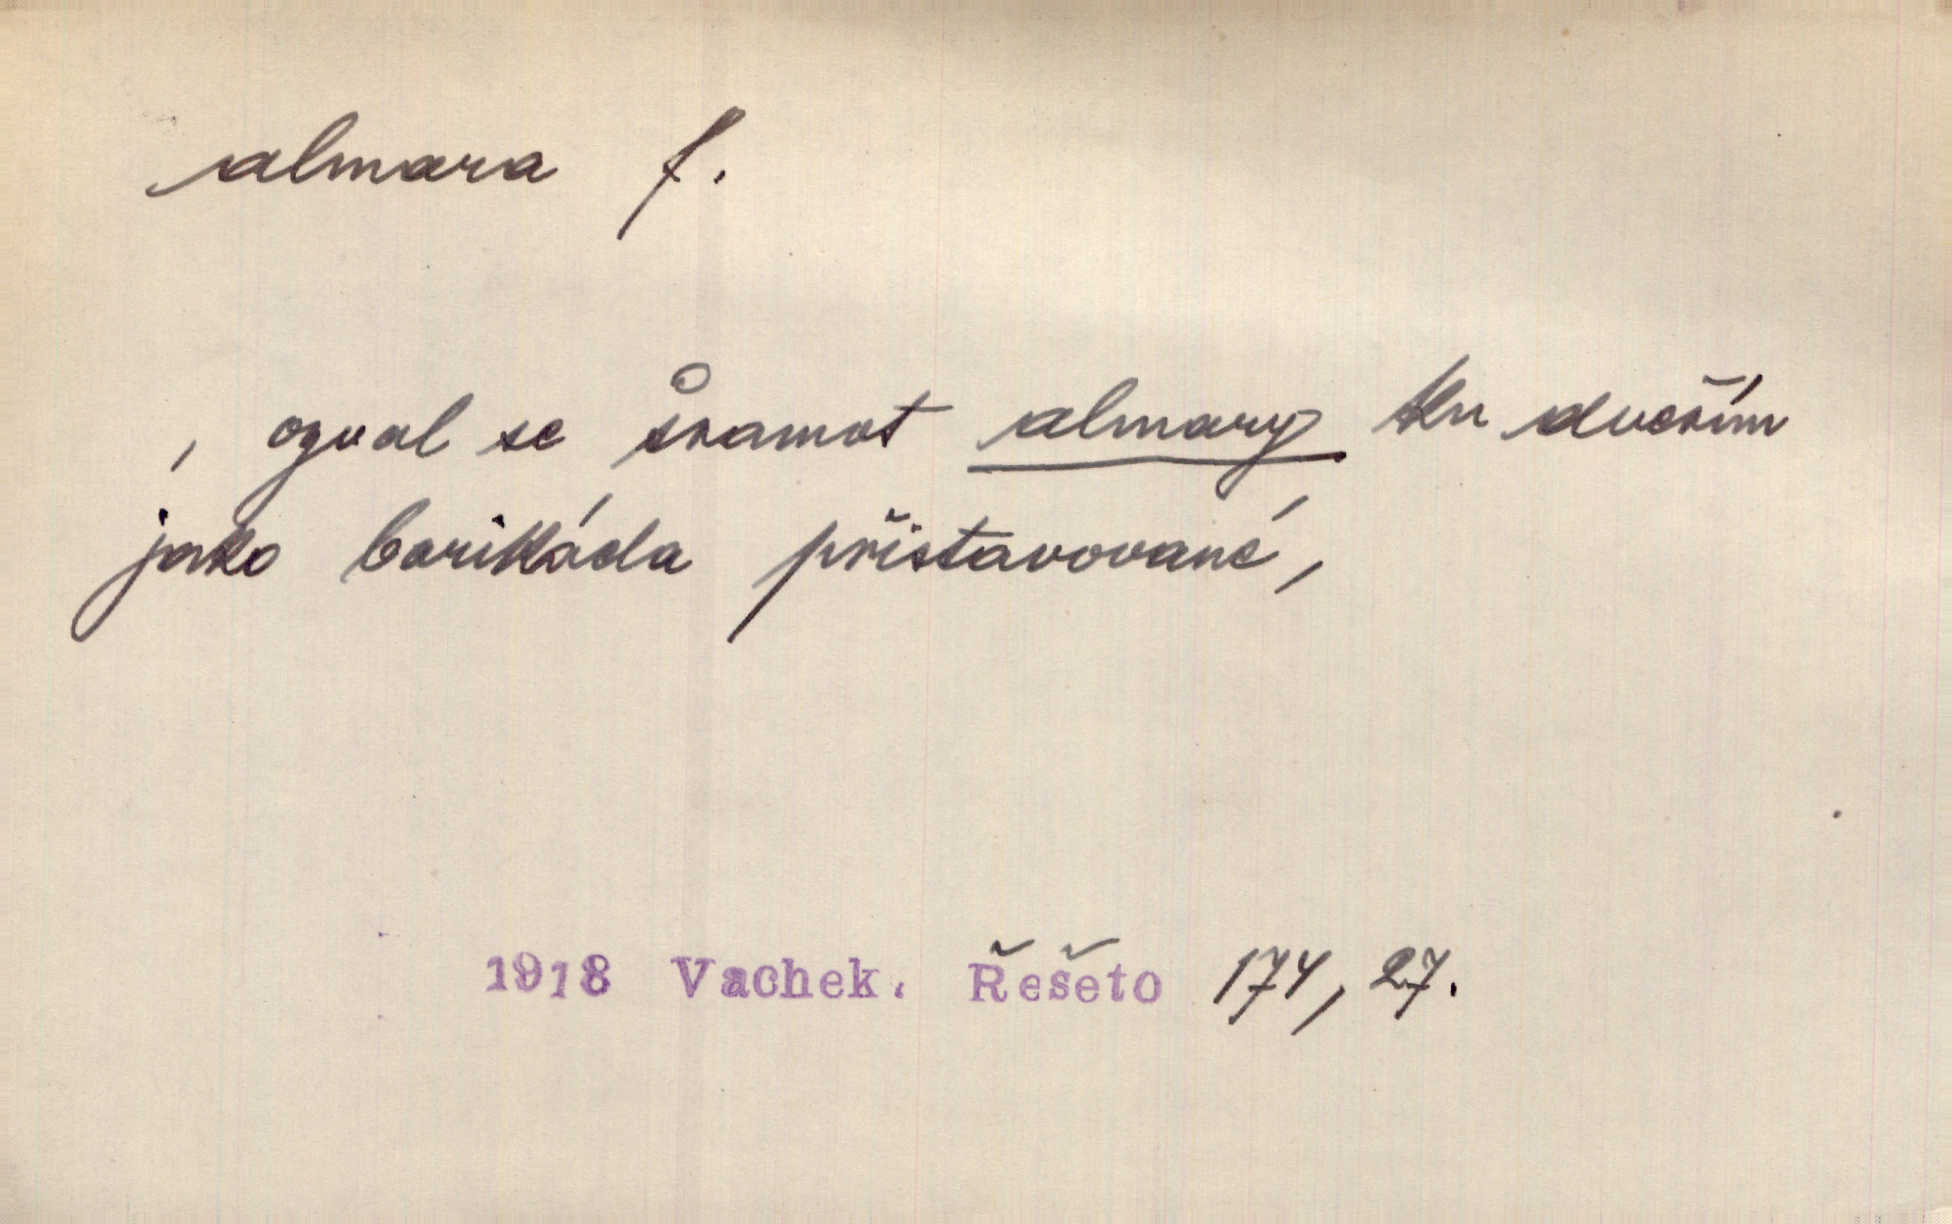 almara f.
, ozval se šramot almary ku dveřím
jako barikáda přistavované,
1918 Vachek. Řešeto 174, 27.